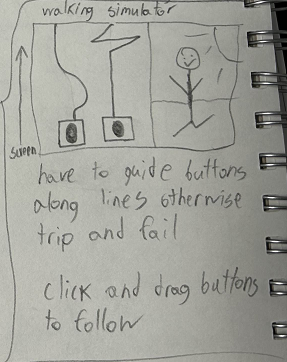 walking simulator
screen
have to guide buttons
along lines otherwise
trip and fail
click and drag buttons
to follow